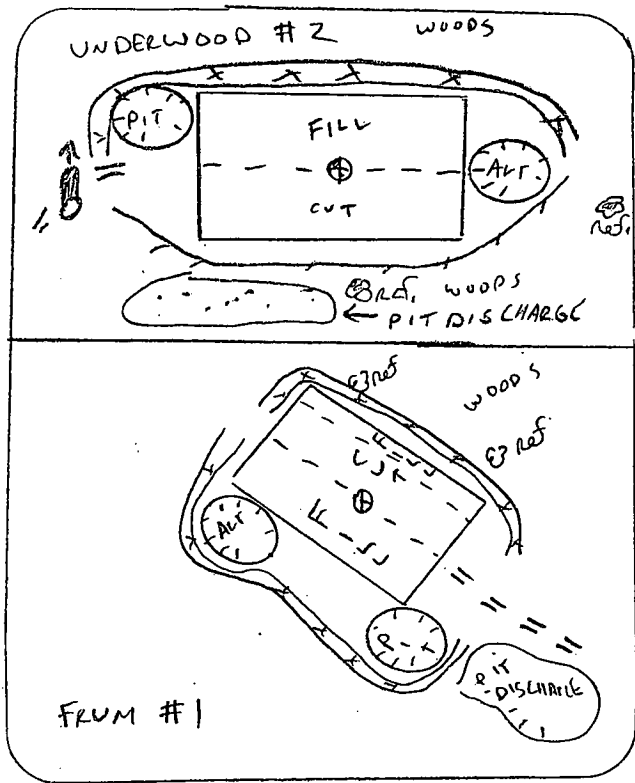 UNDERWOOD # 2
WOODS
PIT
FILL
ALT
CUT
Ref.
Ref. WOODS
← PIT DISCHARGE
ref
WOODS
ref.
FILL
CUT
FILL
ALT
PIT
PIT
DISCHARGE
FRUM #1